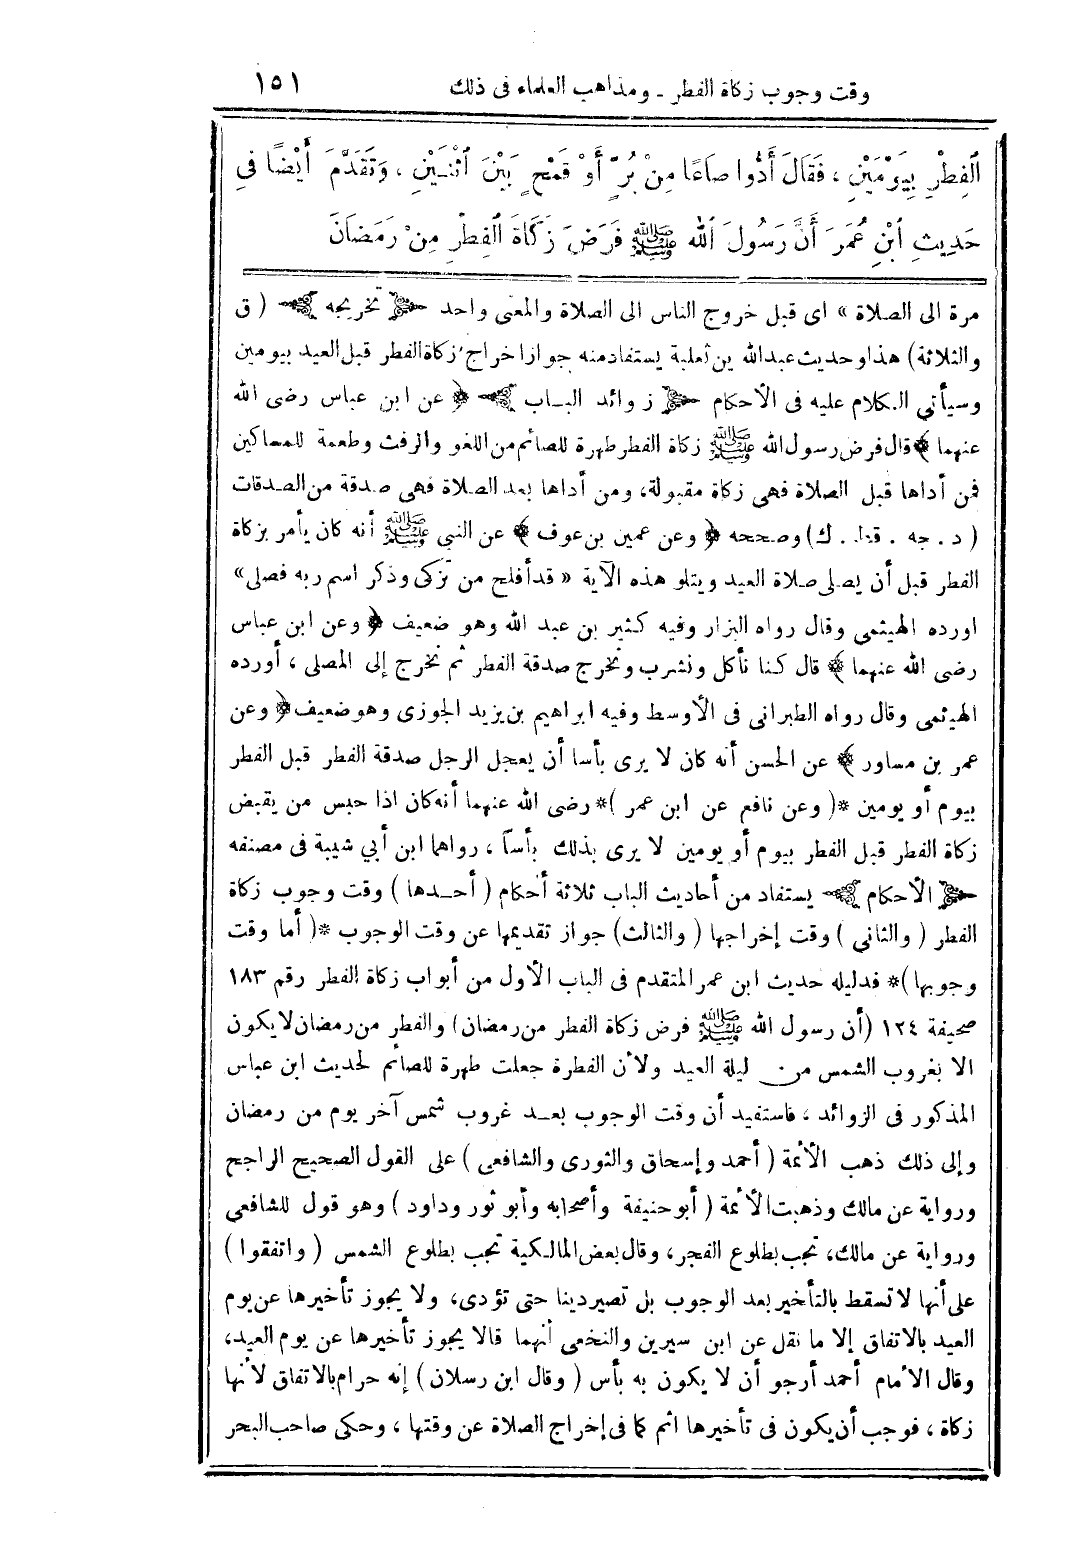 وقت وجوب زكاة الفطر ـ ومذاهب العلماء فى ذلك ١٥١
اَلْفِطْرِ بِيَوْمَيْنِ ، فَقَالَ أَدُّوا صَاعًا مِنْ بُرٍّ أَوْ قَمْحٍ بَيْنَ اثْنَيْنِ ، وَتَقَدَّمَ أَيْضًا فِى
حَدِيثِ ابْنِ عُمَرَ أَنَّ رَسُولَ اللهِ ﷺ فَرَضَ زَكَاةَ الْفِطْرِ مِنْ رَمَضَانَ
مرة الى الصلاة » اى قبل خروج الناس الى الصلاة والمعنى واحد ﴿ تخريجه ﴾ ( ق
والثلاثة) هذا وحديث عبدالله بن ثعلبة يستفاد منه جواز اخراج زكاة الفطر قبل العيد بيومين
وسيأتي الكلام عليه فى الأحكام ﴿ زوائد الباب ﴾ ﴿ عن ابن عباس رضى الله
عنهما ﴾ قال فرض رسول الله ﷺ زكاة الفطر طهرة للصائم من اللغو والرفث وطعمة للمساكين
فمن أداها قبل الصلاة فهى زكاة مقبولة، ومن أداها بعد الصلاة فهى صدقة من الصدقات
( د . جه . قط . ك) وصححه ﴿ وعن عمير بن عوف ﴾ عن النبي ﷺ أنه كان يأمر بزكاة
الفطر قبل أن يصلى صلاة العيد ويتلو هذه الآية « قد أفلح من تزكى وذكر اسم ربه فصلى»
اورده الهيثمى وقال رواه البزار وفيه كثير بن عبد الله وهو ضعيف ﴿ وعن ابن عباس
رضى الله عنهما ﴾ قال كنا نأكل ونشرب ونخرج صدقة الفطر ثم نخرج إلى المصلى ، أورده
الهيثمى وقال رواه الطبرانى فى الأوسط وفيه ابراهيم بن يزيد الجوزى وهو ضعيف ﴿ وعن
عمر بن مساور ﴾ عن الحسن أنه كان لا يرى بأسا أن يعجل الرجل صدقة الفطر قبل الفطر
بيوم أو يومين *( وعن نافع عن ابن عمر )* رضى الله عنهما أنه كان اذا حبس من يقبض
زكاة الفطر قبل الفطر بيوم أو يومين لا يرى بذلك بأساً ، رواهما ابن أبي شيبة فى مصنفه
﴿ الأحكام ﴾ يستفاد من أحاديث الباب ثلاثة أحكام ( أحدها ) وقت وجوب زكاة
الفطر ( والثانى ) وقت إخراجها ( والثالث) جواز تقديمها عن وقت الوجوب *( أما وقت
وجوبها )* فدليله حديث ابن عمر المتقدم فى الباب الأول من أبواب زكاة الفطر رقم ١٨٣
صحيفة ١٢٤ (أن رسول الله ﷺ فرض زكاة الفطر من رمضان) والفطر من رمضان لا يكون
الا بغروب الشمس من ليلة العيد ولأن الفطرة جعلت طهرة للصائم لحديث ابن عباس
المذكور فى الزوائد ، فاستفيد أن وقت الوجوب بعد غروب شمس آخر يوم من رمضان
وإلى ذلك ذهب الأئمة ( أحمد وإسحاق والثورى والشافعى ) على القول الصحيح الراجح
ورواية عن مالك وذهبت الأئمة ( أبو حنيفة وأصحابه وأبو ثور وداود ) وهو قول للشافعى
ورواية عن مالك، تجب بطلوع الفجر، وقال بعض المالكية تجب بطلوع الشمس ( واتفقوا )
على أنها لا تسقط بالتأخير بعد الوجوب بل تصير دينا حتى تؤدى، ولا يجوز تأخيرها عن يوم
العيد بالاتفاق إلا ما نقل عن ابن سيرين والنخعى أنهما قالا يجوز تأخيرها عن يوم العيد،
وقال الأمام أحمد أرجو أن لا يكون به بأس ( وقال ابن رسلان ) إنه حرام بالاتفاق لأنها
زكاة ، فوجب أن يكون فى تأخيرها اثم كما فى إخراج الصلاة عن وقتها ، وحكى صاحب البحر